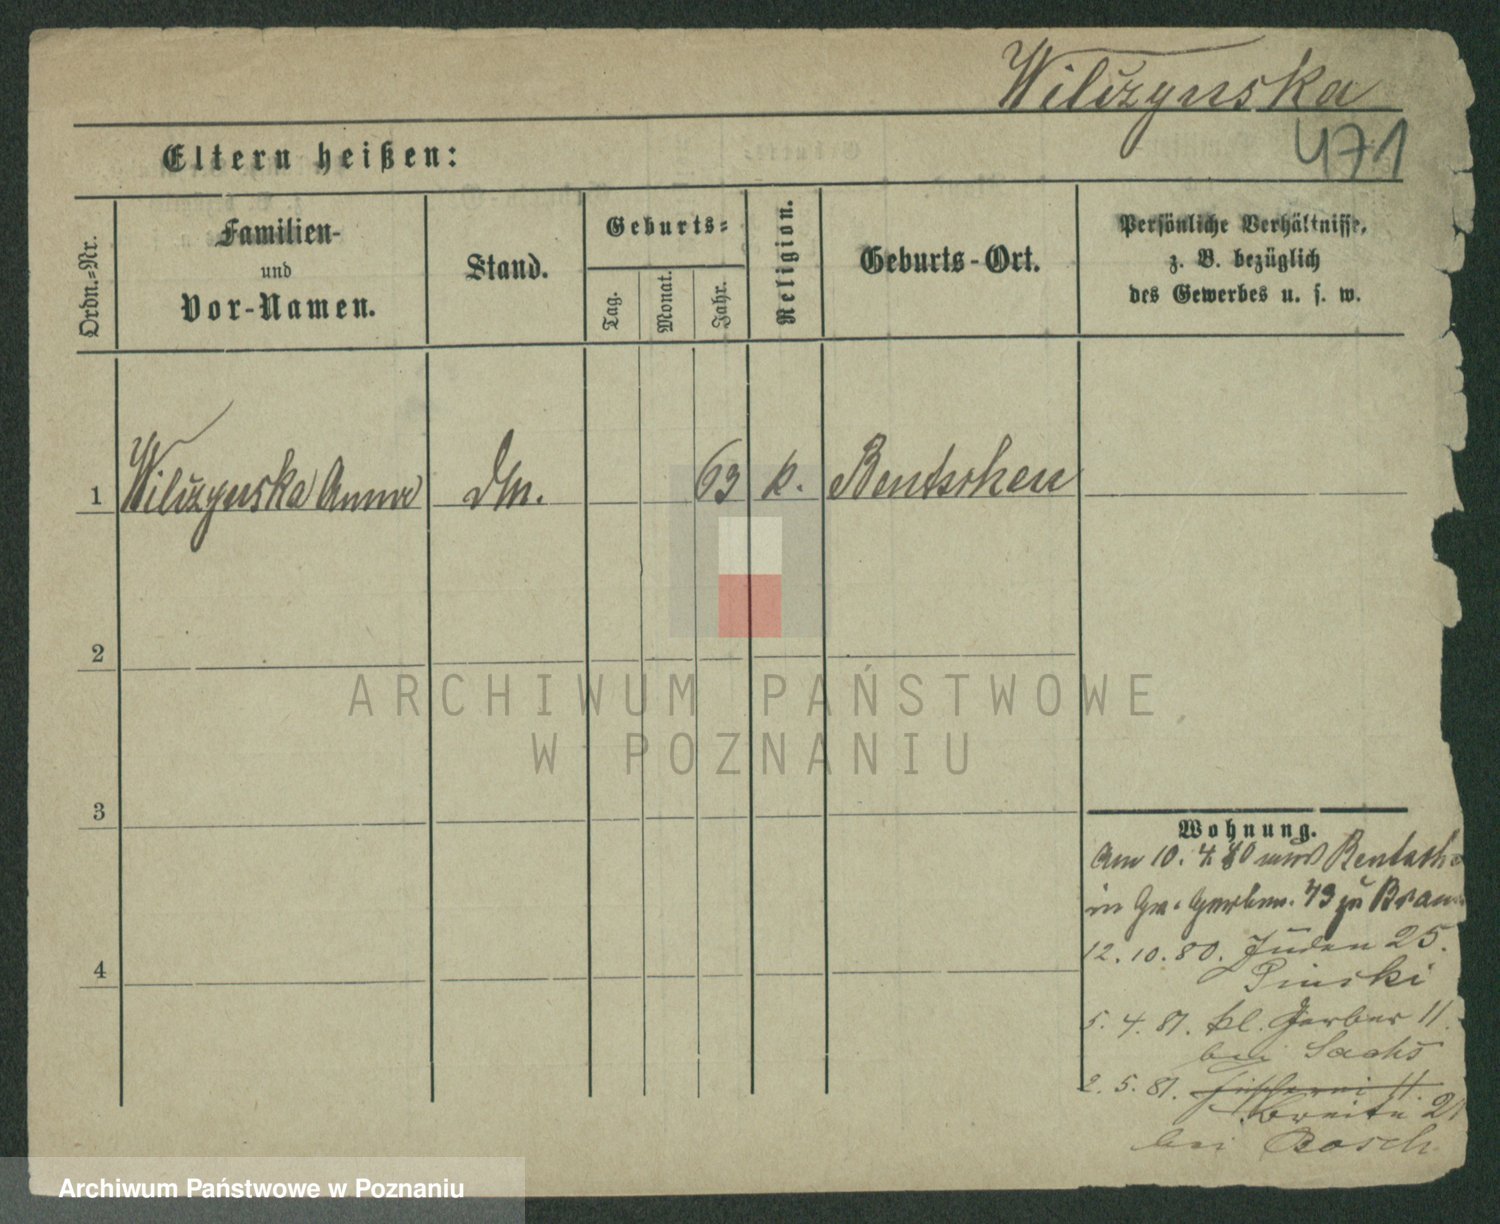 Wilczynska
471
Eltern heißen:
Ordn.=Nr.
Familien-
und
Vor-Namen.
Stand.
Geburts=
Tag.
Monat.
Jahr.
Religion.
Geburts-Ort.
Persönliche Verhältnisse,
z. B. bezüglich
des Gewerbes u. s. w.
1 Wilczynska Anna 63 k. Bentschen
2
3
4
ARCHIWUM PAŃSTWOWE
W POZNANIU
Wohnung.
Am 10. 4. 80 aus Bentsch
in Gr. Gerber. 49 zu
12. 10. 80. Juden 25.
Pinski
5. 4. 81. kl. Gerber 11.
bei Sachs
2. 5. 81. Fischerei 11.
Breite 21
bei Basch
Archiwum Państwowe w Poznaniu